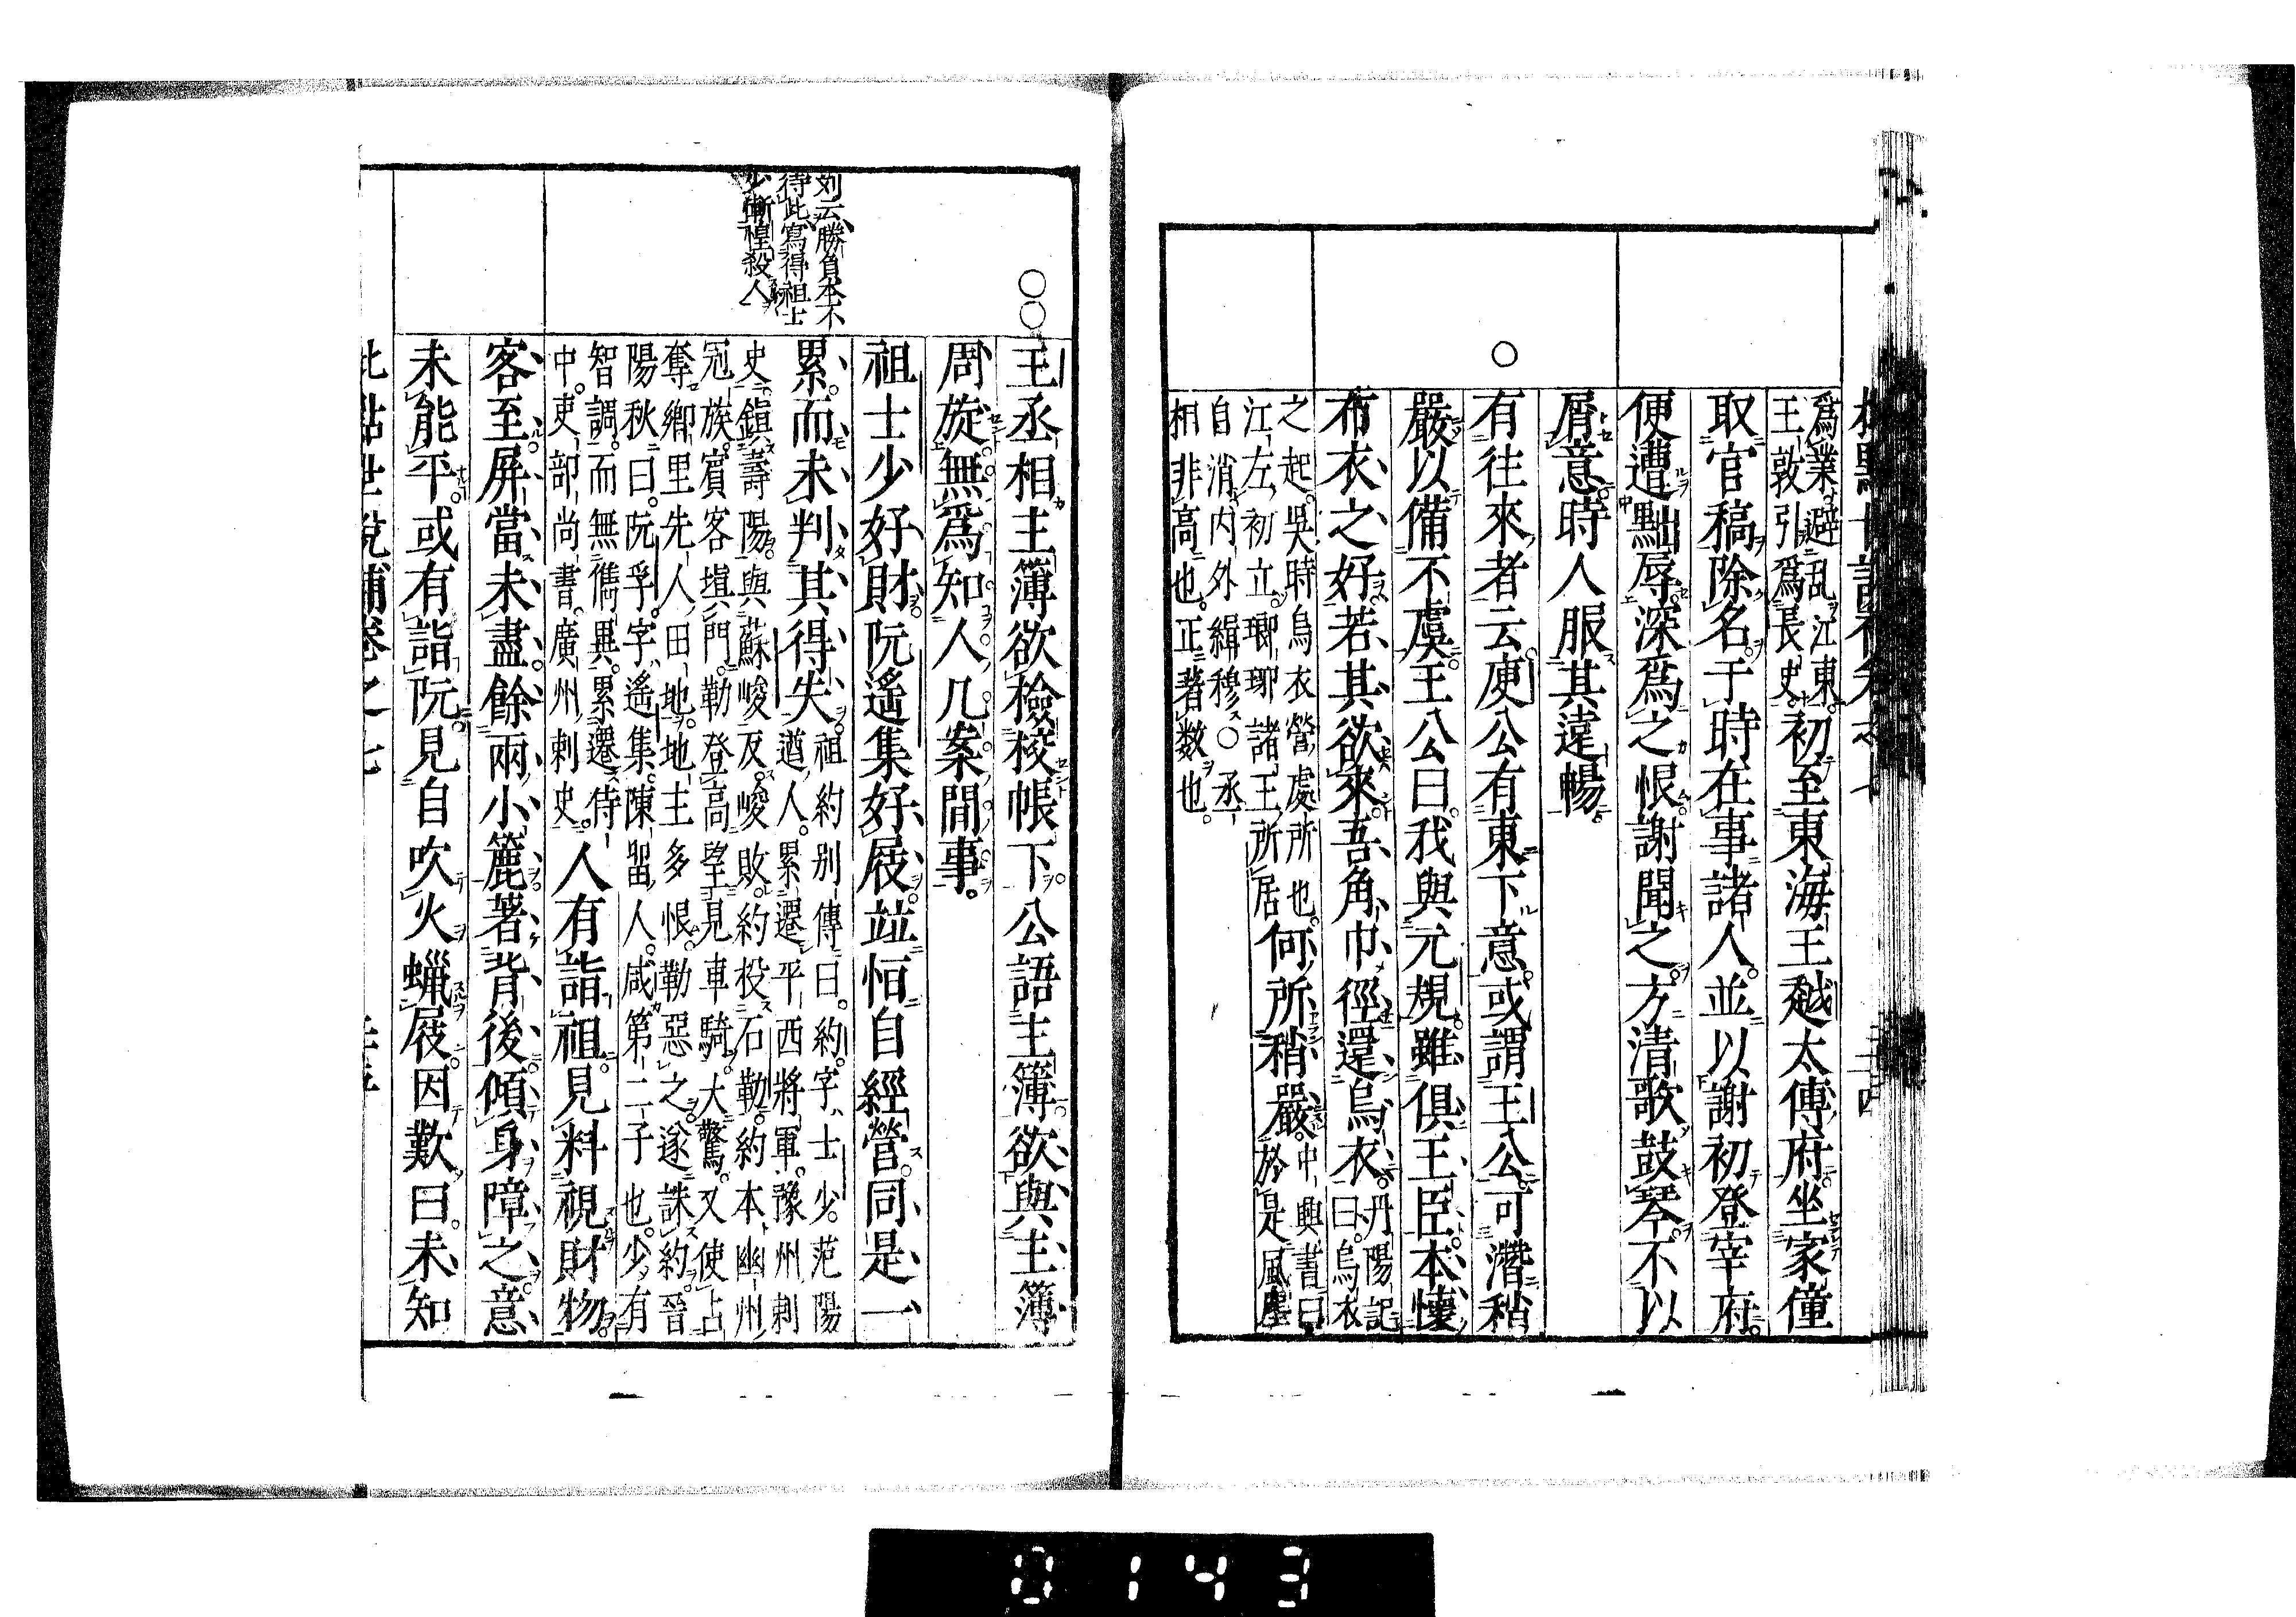 爲業避乱江東
王敦引爲長史初至東海王越太傅府坐家僮
取官稿除名于時在事諸人並以謝初登宰府
便遭黜辱深爲之恨謝聞之方清歌鼓琴不以
屑意時人服其遠暢
○
有往來者云庾公有東下意或謂王公可潛稍
嚴以備不虞王公曰我與元規雖俱王臣本懷
布衣之好若其欲來吾角巾徑還烏衣丹陽記
曰烏衣
之起吳時烏衣營處所也
江左初立瑯琊諸王所居何所稍嚴中興書曰
於是風塵
自消内外緝穆○丞
相非高也正著数也
○○
王丞相主簿欲檢校帳下公語主簿欲與主簿
周旋無爲知人几案閒事
祖士少好財阮遙集好屐並恒自經營同是一
累而未判其得失祖約別傳曰約字士少范陽
遒人累遷平西將軍豫州刺
史鎮壽陽與蘇峻反峻敗約投石勒約本幽州
冠族賓客塡門勒登高望見車騎大驚又使占
奪鄉里先人田地地主多恨勒惡之遂誅約晉
陽秋曰阮孚字遙集陳留人咸第二子也少有
智調而無儁異累遷侍
中吏部尚書廣州刺史人有詣祖見料視財物
客至屏當未盡餘兩小簏著背後傾身障之意
未能平或有詣阮見自吹火蠟屐因歎曰未知
刘云勝負本不
待此寫得祖士
少慚惶殺人
批點世說補卷之七
0143